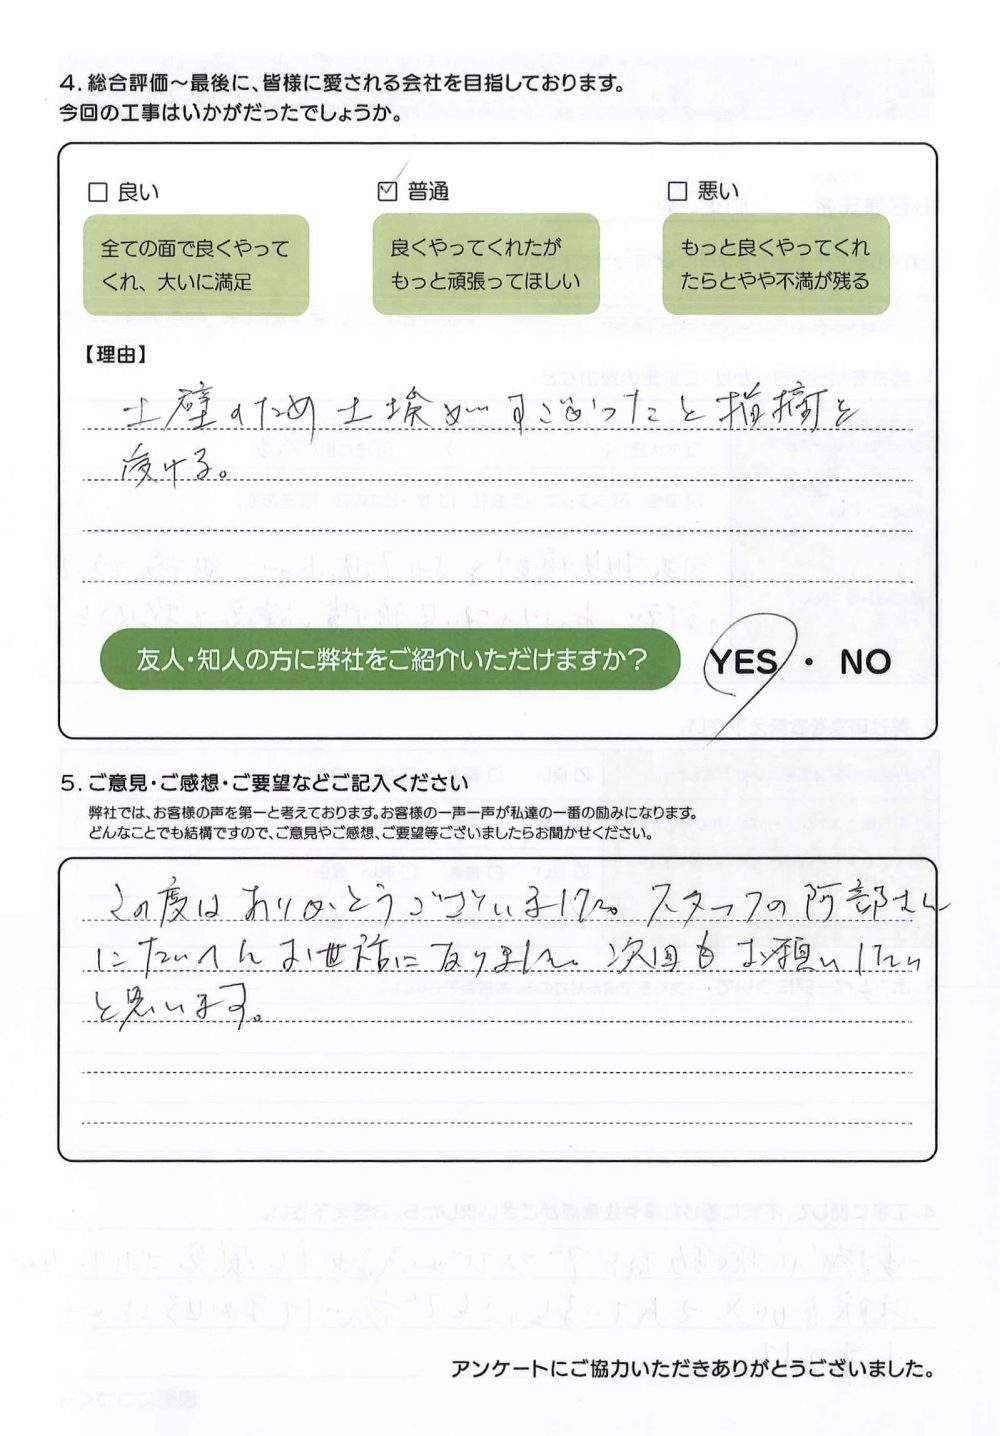 4. 総合評価～最後に、皆様に愛される会社を目指しております。
今回の工事はいかがだったでしょうか。
□ 良い
☑ 普通
□ 悪い
全ての面で良くやって
くれ、大いに満足
良くやってくれたが
もっと頑張ってほしい
もっと良くやってくれ
たらとやや不満が残る
【理由】
土壁のため土埃がすごかったと指摘を
受ける。
友人・知人の方に弊社をご紹介いただけますか？ YES・NO
5. ご意見・ご感想・ご要望などご記入ください
弊社では、お客様の声を第一と考えております。お客様の一声一声が私達の一番の励みになります。
どんなことでも結構ですので、ご意見やご感想、ご要望等ございましたらお聞かせください。
この度はありがとうございました。スタッフの阿部さん
にたいへんお世話になりました。次回もお願いしたい
と思います。
アンケートにご協力いただきありがとうございました。